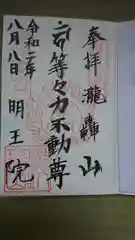 奉拝 瀧轟山
等々力不動尊
令和二年
八月八日 明王院